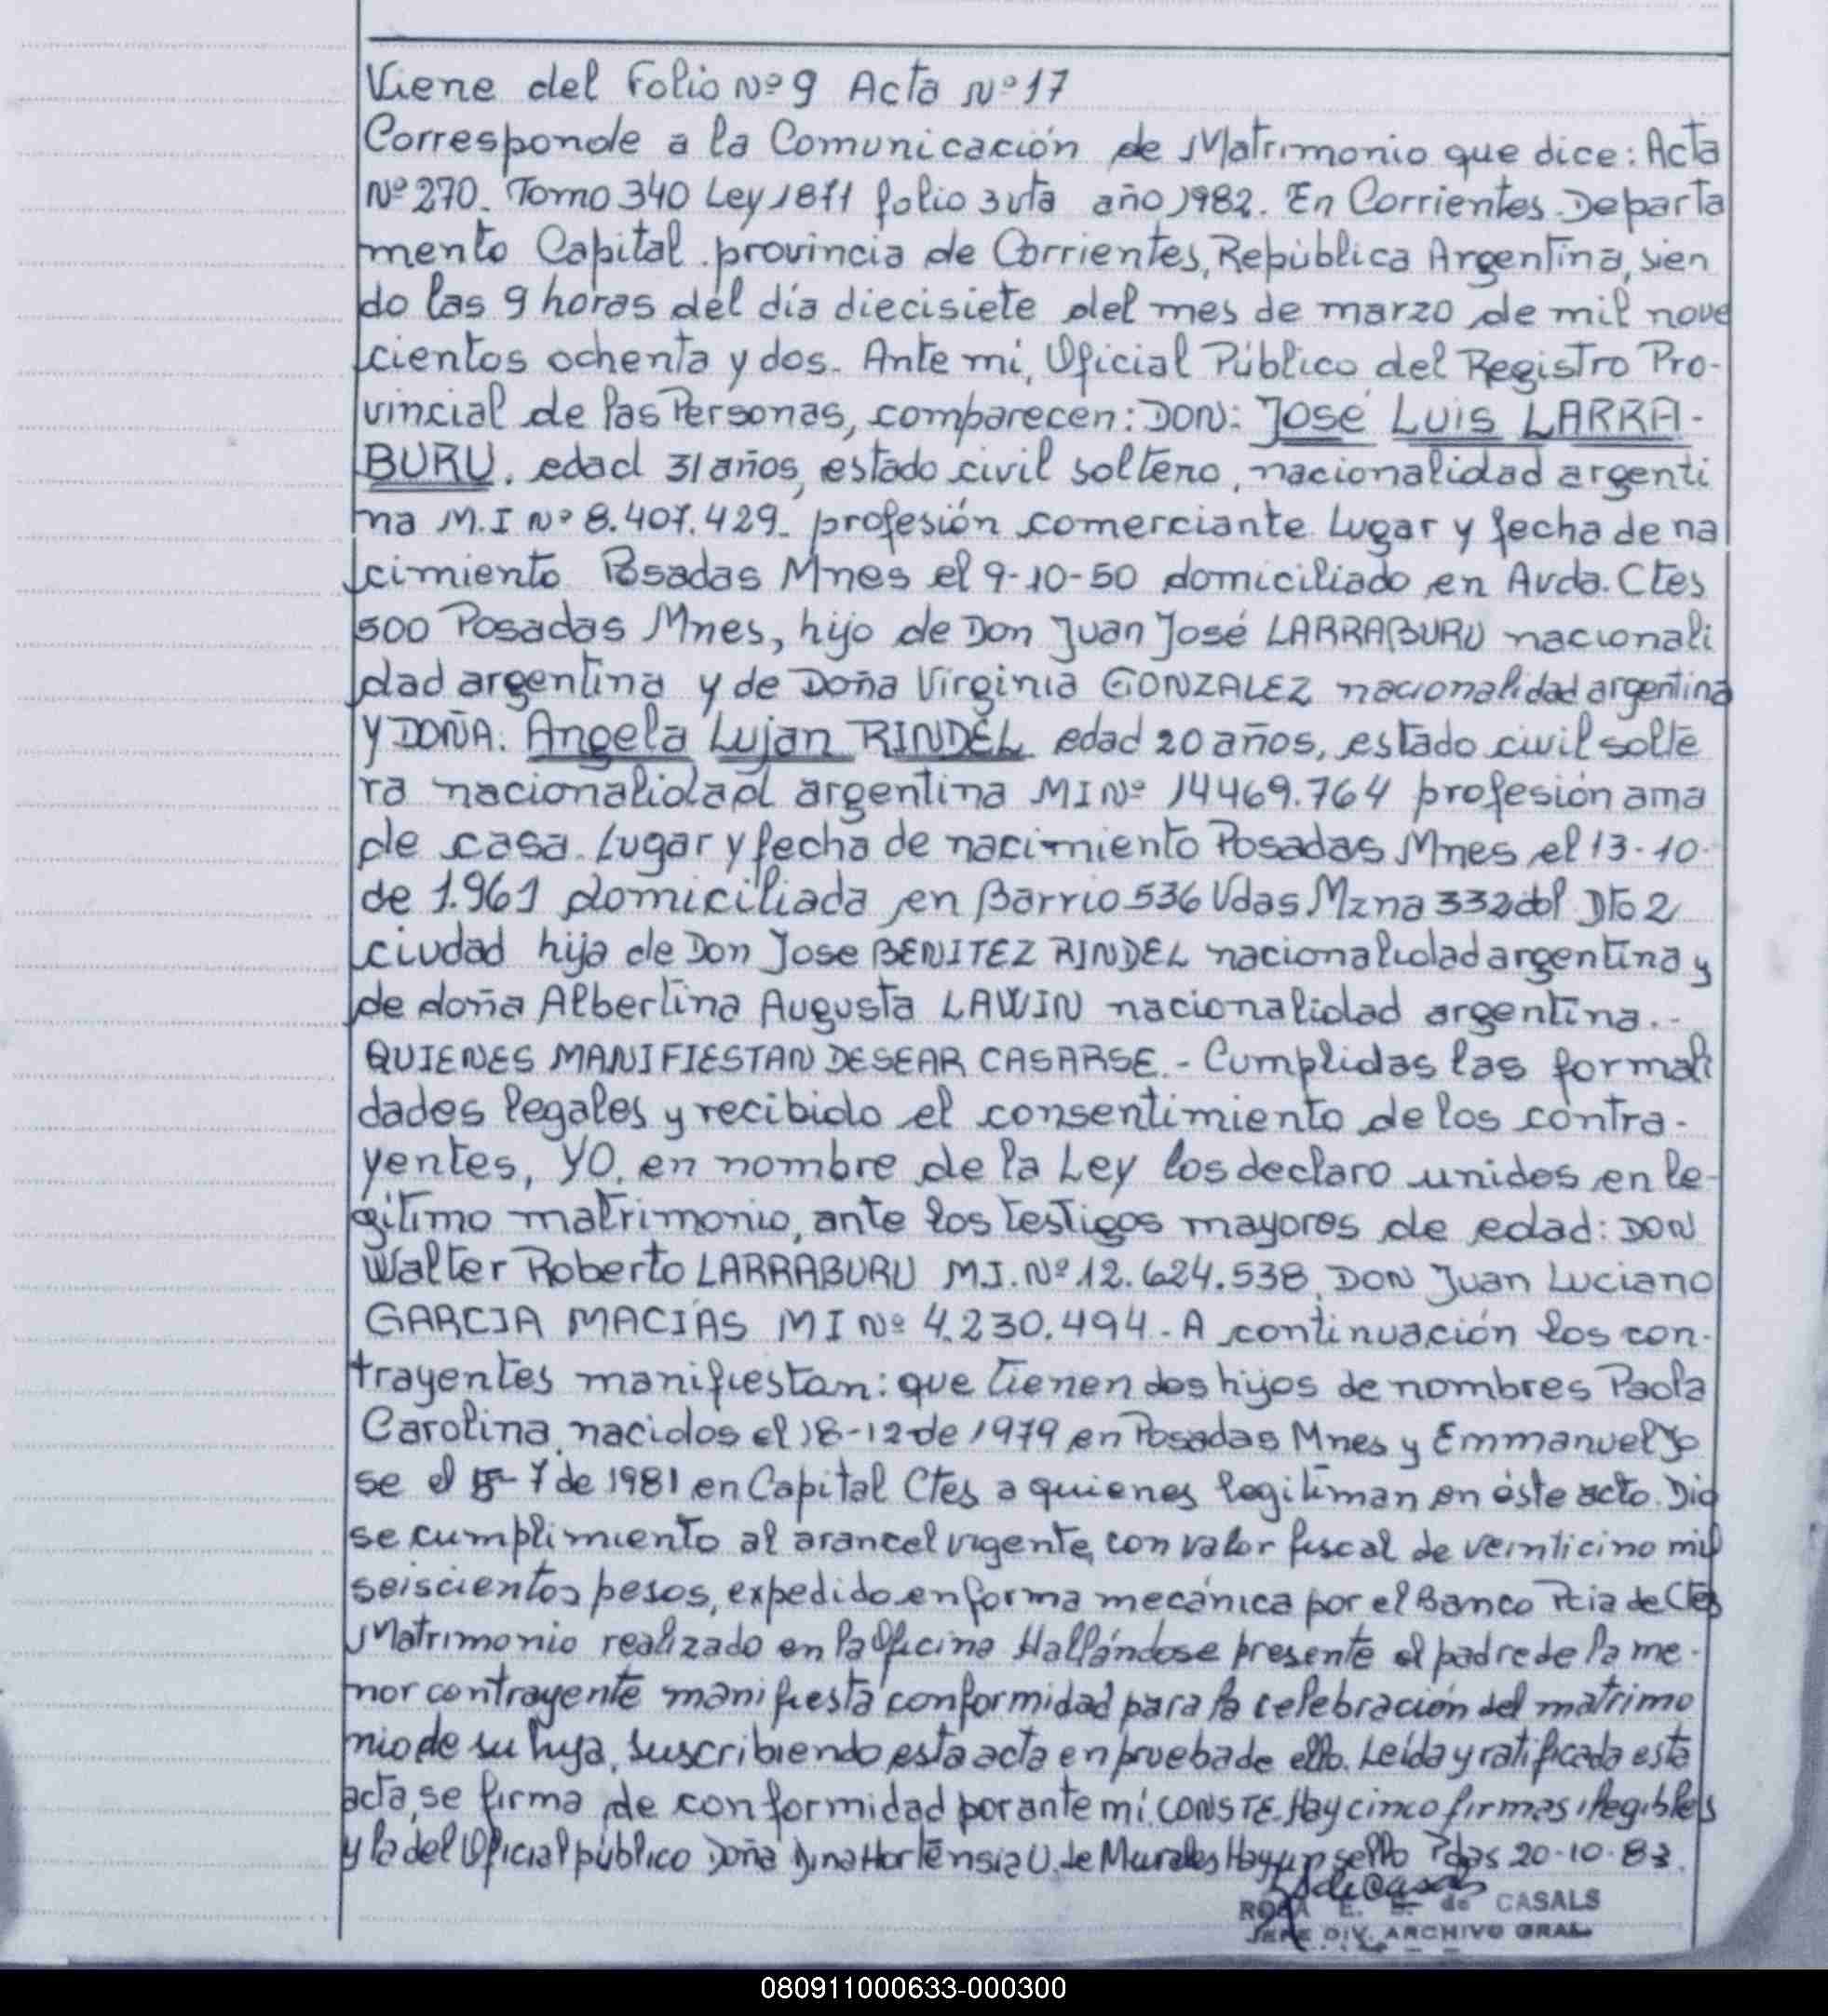 Viene del Folio Nº 9 Acta Nº 17
Corresponde a la Comunicación de Matrimonio que dice: Acta
Nº 270. Tomo 340 Ley 1811 folio 3 vta año 1982. En Corrientes. Departa
mento Capital. provincia de Corrientes, República Argentina, sien
do las 9 horas del día diecisiete del mes de marzo de mil nove
cientos ochenta y dos. Ante mí, Oficial Público del Registro Pro-
vincial de las Personas, comparecen: DON: José Luis LARRA-
BURU. edad 31 años, estado civil soltero, nacionalidad argenti
na M.I Nº 8.407.429. profesión comerciante Lugar y fecha de na
cimiento Posadas Mnes el 9-10-50 domiciliado en Avda. Ctes
500 Posadas Mnes, hijo de Don Juan José LARRABURU nacionali
dad argentina y de Doña Virginia GONZALEZ nacionalidad argentina
Y DOÑA: Angela Lujan RINDEL edad 20 años, estado civil solte
ra nacionalidad argentina MI Nº 14469.764 profesión ama
de casa. Lugar y fecha de nacimiento Posadas Mnes el 13-10-
de 1.961 domiciliada en Barrio 536 Vdas Mzna 332 dpl Dto 2
ciudad hija de Don Jose BENITEZ RINDEL nacionalidad argentina y
de doña Albertina Augusta LAWIN nacionalidad argentina.-
QUIENES MANIFIESTAN DESEAR CASARSE.- Cumplidas las formali
dades legales y recibido el consentimiento de los contra-
yentes, YO, en nombre de la Ley los declaro unidos en le-
gitimo matrimonio, ante los testigos mayores de edad: DON
Walter Roberto LARRABURU M.I. Nº 12.624.538, DON Juan Luciano
GARCIA MACÍAS M I Nº 4.230.494.- A continuación los con-
trayentes manifiestan: que tienen dos hijos de nombres Paola
Carolina, nacidos el 18-12 de 1979 en Posadas Mnes y Emmanuel Jo
se el 5-7 de 1981 en Capital Ctes a quienes legitiman en éste acto. Dio
se cumplimiento al arancel vigente, con valor fiscal de veinticino mil
seiscientos pesos, expedido en forma mecánica por el Banco Pcia de Ctes
Matrimonio realizado en la Oficina Hallándose presente el padre de la me-
nor contrayente manifiesta conformidad para la celebración del matrimo
nio de su hija, suscribiendo esta acta en prueba de ello. Leída y ratificada esta
acta, se firma de conformidad por ante mí. CONSTE. Hay cinco firmas ilegibles
y la del Oficial público Doña Dina Hortensia U. de Murales Hay un sello Pdas 20-10-83.
ROSA E. de CASALS
JEFE DIV. ARCHIVO GRAL.
080911000633-000300